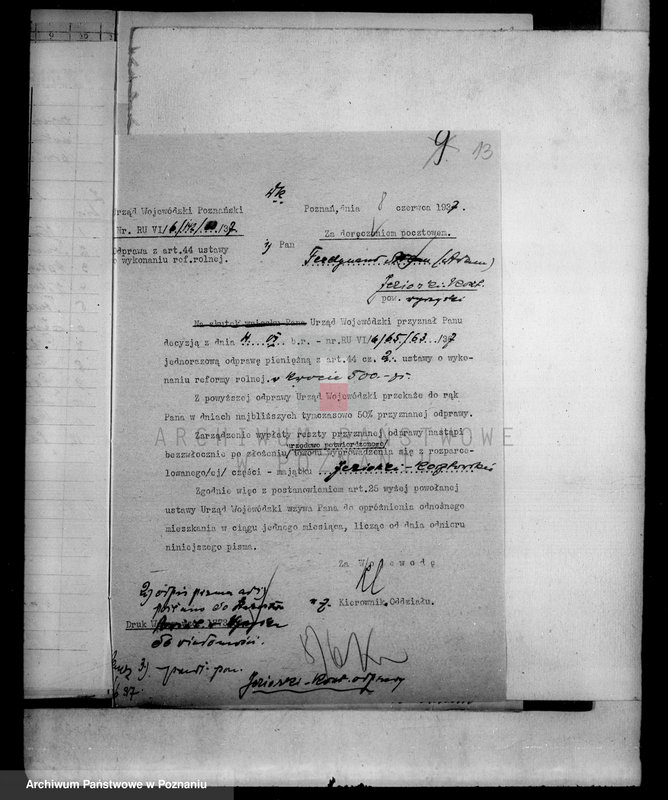 9 13
Urząd Wojewódzki Poznański
Poznań, dnia 8 czerwca 1937.
Nr. RU VI/6/ /137
Za doręczeniem pocztowem.
Odprawa z art.44 ustawy
o wykonaniu ref.rolnej.
1) Pan
Ferdynand (Adam)
Jeziorki
pow. wyrzyski
Na skutek wniosku Pana Urząd Wojewódzki przyznał Panu
decyzją z dnia 4. VI b.r. - nr.RU VI/6/65/63 /137
jednorazową odprawę pieniężną z art.44 cz. 2. ustawy o wyko-
naniu reformy rolnej. w kwocie 500.- zł.
Z powyższej odprawy Urząd Wojewódzki przekaże do rąk
Pana w dniach najbliższych tymczasowo 50% przyznanej odprawy.
ARCHIWUM PAŃSTWOWE
Zarządzenie wpłaty reszty przyznanej odprawy nastąpi
urzędowo potwierdzonego/
bezzwłocznie po złożeniu/dowodu wyprowadzenia się z rozparce-
lowanego/ej/ części - majątku Jeziorki-Kosztowskie
Zgodnie więc z postanowieniem art.25 wyżej powołanej
ustawy Urząd Wojewódzki wzywa Pana do opróżnienia odnośnego
mieszkania w ciągu jednego miesiąca, licząc od dnia odbioru
niniejszego pisma.
Za Wojewodę
Kierownik Oddziału.
2) odpis pisma
do
Druk
do wiadomości.
3).
Jeziorki-Koszt. odprawy
Archiwum Państwowe w Poznaniu